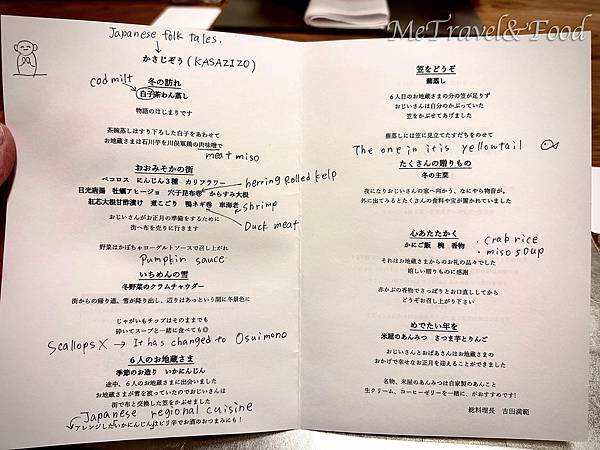 MeTravel&Food
Japanese folk tales.
かさじぞう(KASAZIZO)
cod milt
冬の訪れ
白子茶わん蒸し
物語のはじまりです
茶碗蒸しはすり下ろした白子をあわせて
お地蔵さまは石川芋を川俣軍鶏の肉味噌で
meat miso
おおみそかの街
ペコロス にんじん3種 カリフラワー
herring Rolled kelp
日光唐揚 牡蠣アヒージョ 穴子昆布巻 からすみ大根
紅芯大根甘酢漬け 煮こごり 鴨ネギ巻 車海老
shrimp
おじいさんがお正月の準備をするために
街へ布を売りに行きます
Duck meat
野菜はかぼちゃヨーグルトソースで召し上がれ
Pumpkin sauce
いちめんの雪
冬野菜のクラムチャウダー
街からの帰り道、雪が降り出し、辺りはあっという間に冬景色に
じゃがいもチップはそのままでも
砕いてスープと一緒に食べても◎
Scallops X → It has changed to Osuimono
6人のお地蔵さま
季節のお造り いかにんじん
途中、6人のお地蔵さまに出会いました
お地蔵さまが雪を被っていたのでおじいさんは
街で布と交換した笠をかぶせました
Japanese regional cuisine
アレンジしたいかにんじんはピリ辛でお酒のおつまみにも!
笠をどうぞ
蕪蒸し
6人目のお地蔵さまの分の笠が足りず
おじいさんは自分のかぶっていた
笠をかぶせてあげました
蕪蒸しには笠に見立てたすだちをのせて
The one in it is yellowtail
たくさんの贈りもの
冬の主菜
夜になりおじいさんの家へ向かう、なにやら物音が。
外に出てみるとたくさんの食料や宝が置かれていました
心あたたかく
かにご飯 椀 香物
・crab rice
・miso soup
それはお地蔵さまからのお礼の品々でした
嬉しい贈りものに感謝
赤かぶの香物でさっぱりとお口直ししてから
どうぞお召し上がり下さい
めでたい年を
米屋のあんみつ さつま芋とりんご
おじいさんとおばあさんはお地蔵さまの
おかげで幸せなお正月を迎えることができました
名物、米屋のあんみつは自家製のあんこと
生クリーム、コーヒーゼリーを一緒に、がおすすめです!
総料理長 吉田満範